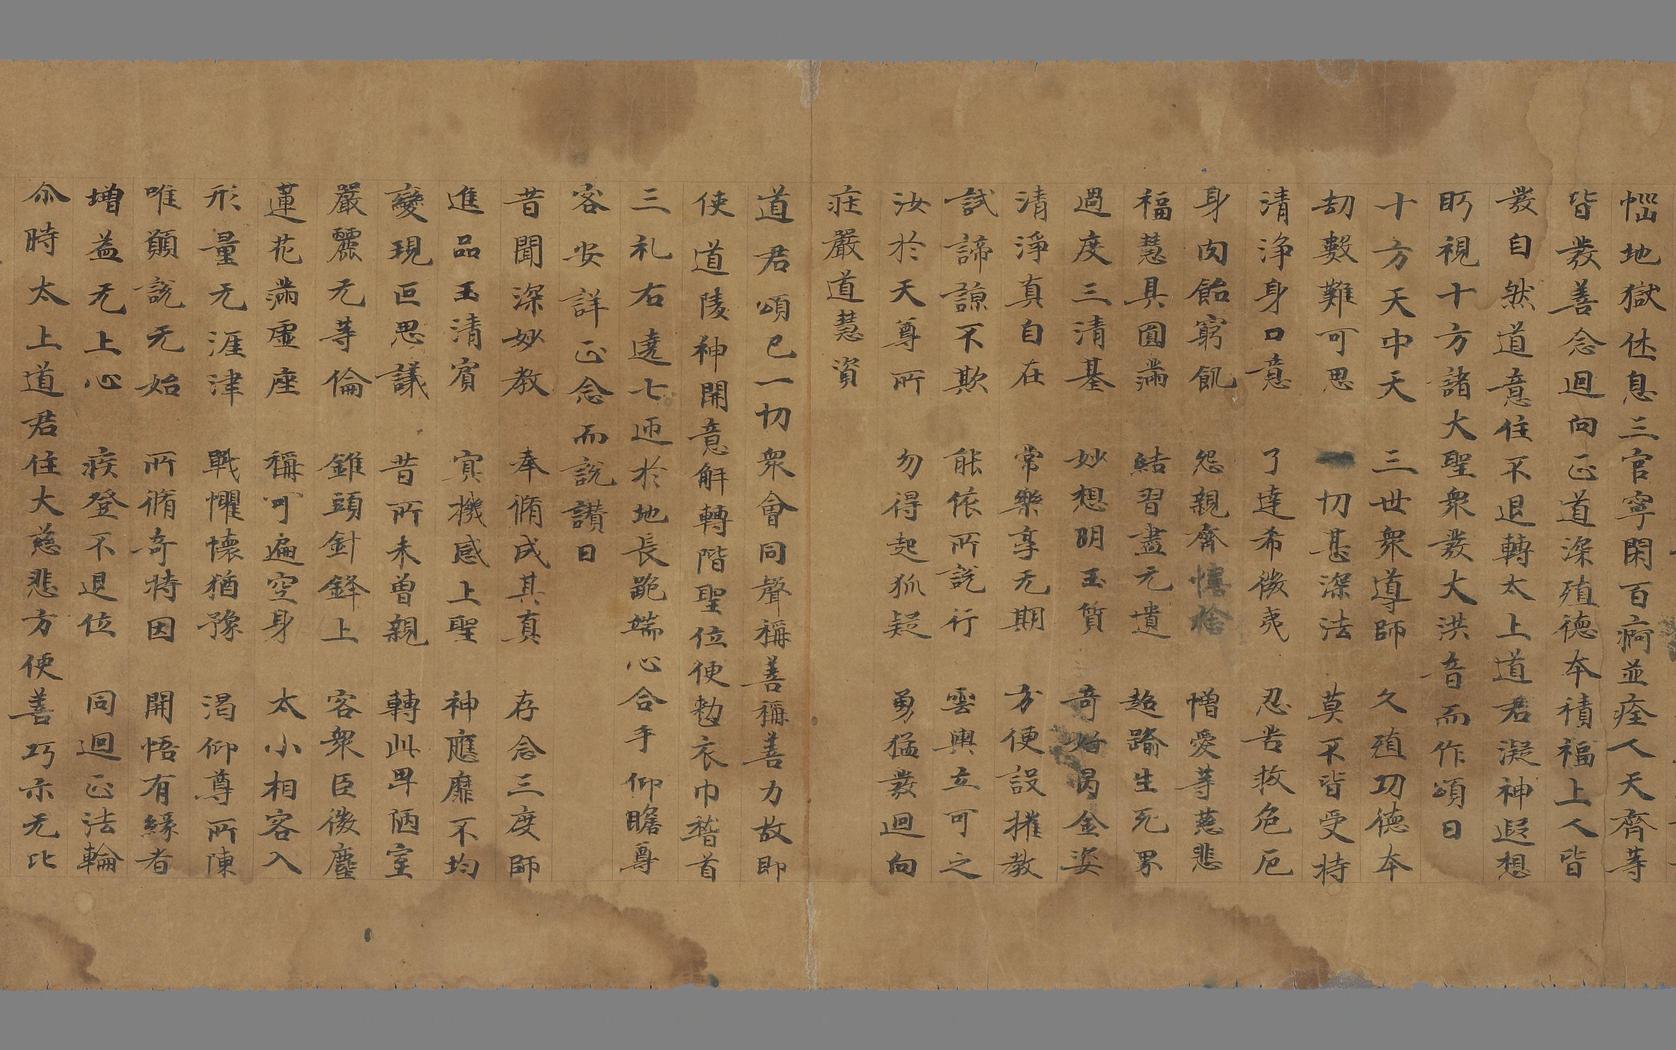 惱地獄休息三官寧閑百痾並痊人天齊等
皆發善念迴向正道深殖德本積福上人皆
發自然道意住不退轉太上道君凝神遐想
眄視十方諸大聖眾發大洪音而作頌曰
十方天中天 三世眾導師 久殖功德本
劫數難可思 一切甚深法 莫不皆受持
清淨身口意 了達希微夷 忍苦救危厄
身肉飴窮飢 怨親齊 憎愛等慈悲
福慧具圓滿 結習盡无遺 超踰生死界
過度三清基 妙想明玉質 奇 金姿
清淨真自在 常樂享无期 方便設權教
試諦諒不欺 能依所說行 雲輿立可之
汝於天尊所 勿得起狐疑 勇猛發迴向
莊嚴道慧資
道君頌已一切眾會同聲稱善稱善力故即
使道陵神開意解轉階聖位便勑衣巾稽首
三礼右遶七迊於地長跪端心合手仰瞻尊
容安詳正念而說讚曰
昔聞深妙教 奉脩成其真 存念三度師
進品玉清賓 冥機感上聖 神應靡不均
變現叵思議 昔所未曾親 轉此卑陋室
嚴麗无等倫 錐頭針鋒上 容衆臣微塵
蓮花滿虛座 稱可遍空身 太小相容入
形量无涯津 戰懼懷猶豫 渴仰尊所陳
唯願說无始 所脩奇特因 開悟有緣者
增益无上心 疾登不退位 同迴正法輪
尒時太上道君住大慈悲方便善巧示无比